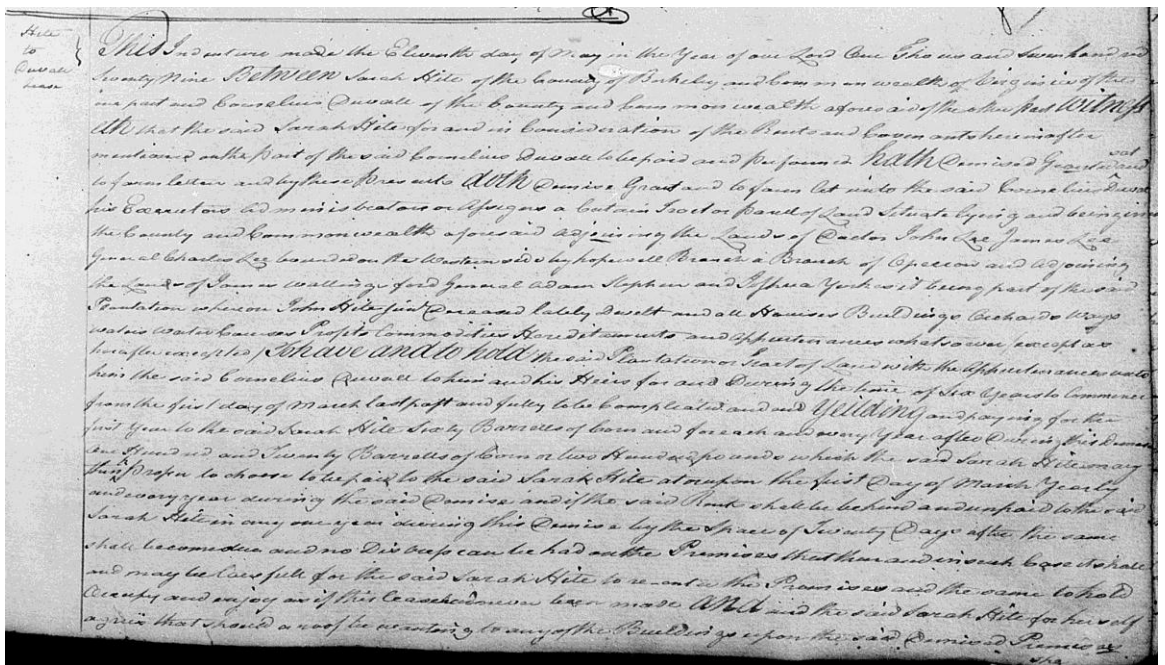 Hite
to
Duvall
Lease
This Indenture made the Eleventh day of May in the Year of our Lord One Thousand Seven hundred
Ninety Nine Between Sarah Hite of the County of Berkeley and Commonwealth of Virginia of the
one part and Cornelius Duvall of the County and Commonwealth aforesaid of the other part Witness
eth that the said Sarah Hite for and in Consideration of the Rents and Covenants hereinafter
mentioned on the part of the said Cornelius Duvall to be paid and performed hath Demised Granted and
to farm letten and by these presents doth Demise Grant and to farm let unto the said Cornelius Duvall
his Executors administrators or assigns a Certain Tract or parcel of Land Situate lying and being in
the County and Commonwealth aforesaid adjoining the Lands of Doctor John Lee James Lee
General Charles Lee bounded on the Western side by hopewell Branch a Branch of Opeccon and Adjoining
the Lands of James Wallingsford General Adam Stephen and Joshua York it being part of the said
Plantation whereon John Hite Junr. Deceased lately Dwelt and all Houses Buildings Orchards Ways
waters Water Courses Profits Commodities Hereditaments and Appurtenances whatsoever (except as
hereafter excepted) To have and to hold the said Plantation or Tract of Land with the appurtenances unto
him the said Cornelius Duvall to him and his Heirs for and During the time of Six Years to Commence
from the first day of March last past and fully to be Compleated and end Yeilding and paying for the
first Year to the said Sarah Hite Sixty Barrells of Corn and for each and every Year after During this Demise
One Hundred and Twenty Barrells of Corn or two Hundred pounds which the said Sarah Hite may
think proper to choose to be paid to the said Sarah Hite at or upon the first Day of March Yearly
and every year during the said Demise and if the said Rent shall be behind and unpaid to the said
Sarah Hite in any one year during this Demise by the Space of Twenty Days after the same
shall become due and no Distress can be had on the Premises that then and in such Case it shall
and may be lawfull for the said Sarah Hite to re-enter the Premises and the same to hold
Occupy and enjoy as if this Lease had never been made And and the said Sarah Hite for herself
agrees that should a roof be wanting to any of the Buildings upon the said Demised Premises
sha